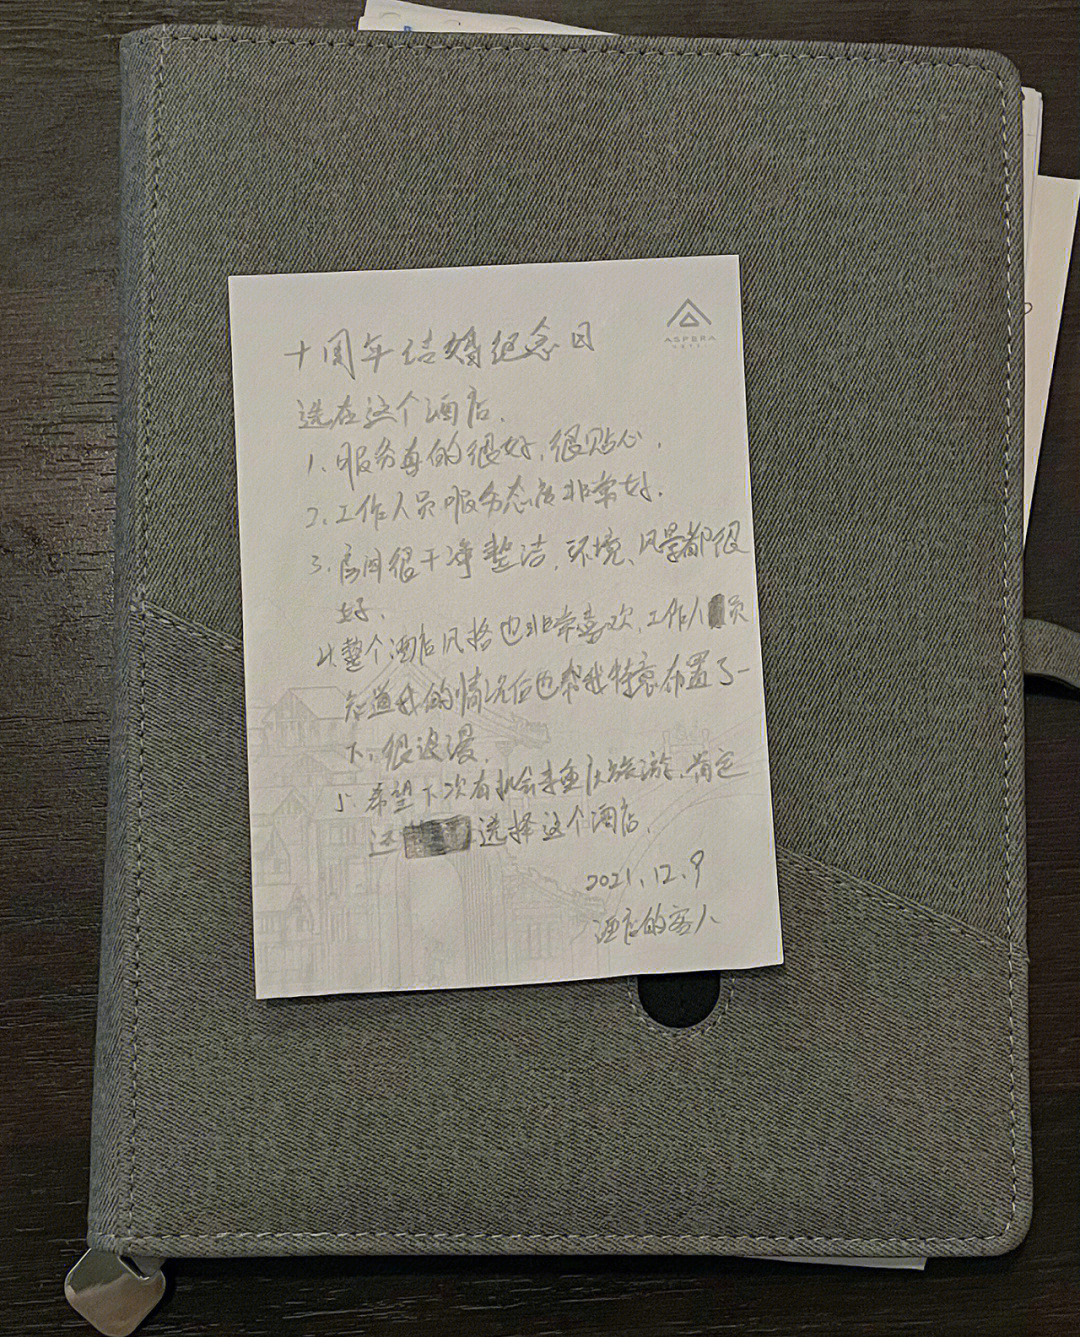 ASPERA
十周年结婚纪念日
选在这个酒店.
1. 服务真的很好, 很贴心.
2. 工作人员服务态度非常好.
3. 房间很干净整洁, 环境、风景都很
好.
4. 整个酒店风格也非常喜欢, 工作人员
知道我的情况后也帮我特意布置了一
下, 很浪漫.
5. 希望下次有机会来重庆旅游, 肯定
还选择这个酒店.
2021.12.9
酒店的客人